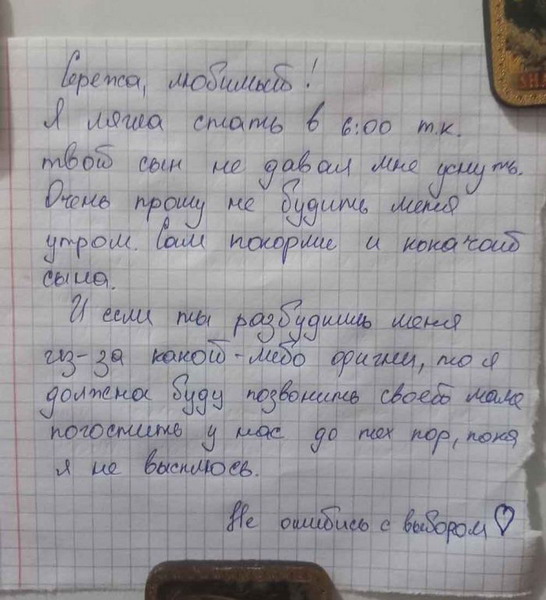 Сережа, любимый!
Я легла спать в 6:00 т.к.
твой сын не давал мне уснуть.
Очень прошу не будить меня
утром. Сам покорми и покачай
сына.
И если ты разбудишь меня
из-за какой-либо фигни, то я
должна буду позвонить своей маме
погостить у нас до тех пор, пока
я не высплюсь.
Не ошибись с выбором♡